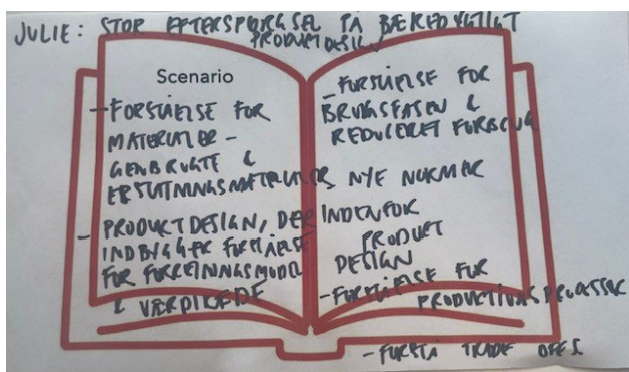 JULIE: STOR EFTERSPØRGSEL PÅ BÆREDYGTIGT
PRODUCTDESIGN
Scenario
- FORSTÅELSE FOR
MATERIALER -
GENBRUGTE &
ERSTATNINGSMATERIALER
- PRODUCTDESIGN, DER
INDBYGGER FORSTÅELSE
FOR FORRETNINGSMODEL
& VÆRDIKÆDE
- FORSTÅELSE FOR
BRUGSFASEN &
REDUCERET FORBRUG
NYE NORMER
INDENFOR
PRODUCT
DESIGN
- FORSTÅELSE FOR
PRODUCTIONSPROCESSER
- FORSTÅ TRADE OFFS